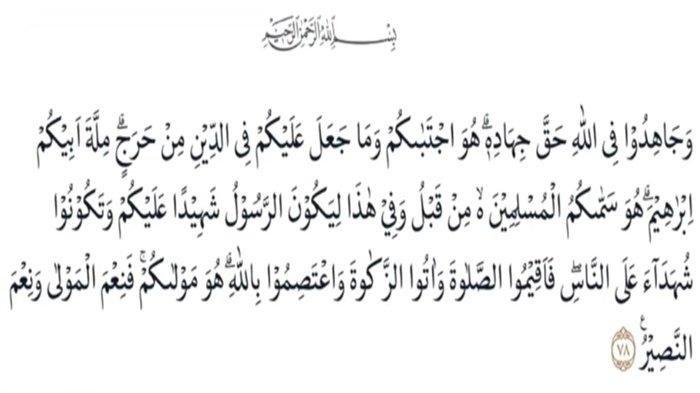 بِسْمِ اللهِ الرَّحْمٰنِ الرَّحِيْمِ
وَجَاهِدُوْا فِى اللهِ حَقَّ جِهَادِهٖ ۗ هُوَ اجْتَبٰىكُمْ وَمَا جَعَلَ عَلَيْكُمْ فِى الدِّيْنِ مِنْ حَرَجٍ ۗ مِلَّةَ اَبِيْكُمْ
اِبْرٰهِيْمَ ۗ هُوَ سَمّٰىكُمُ الْمُسْلِمِيْنَ ەۙ مِنْ قَبْلُ وَفِيْ هٰذَا لِيَكُوْنَ الرَّسُوْلُ شَهِيْدًا عَلَيْكُمْ وَتَكُوْنُوْا
شُهَدَاۤءَ عَلَى النَّاسِۖ فَاَقِيْمُوا الصَّلٰوةَ وَاٰتُوا الزَّكٰوةَ وَاعْتَصِمُوْا بِاللهِ ۗ هُوَ مَوْلٰىكُمْۚ فَنِعْمَ الْمَوْلٰى وَنِعْمَ
النَّصِيْرُ ࣖ ٧٨